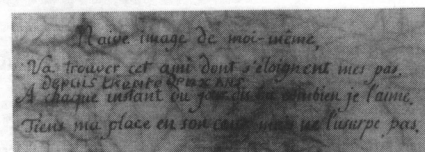 Naive image de moi-même,
Va trouver cet ami dont s'éloignent mes pas.
depuis
A chaque instant du jour combien je l'aime.
Tiens ma place en son cœur mais ne l'usurpe pas.